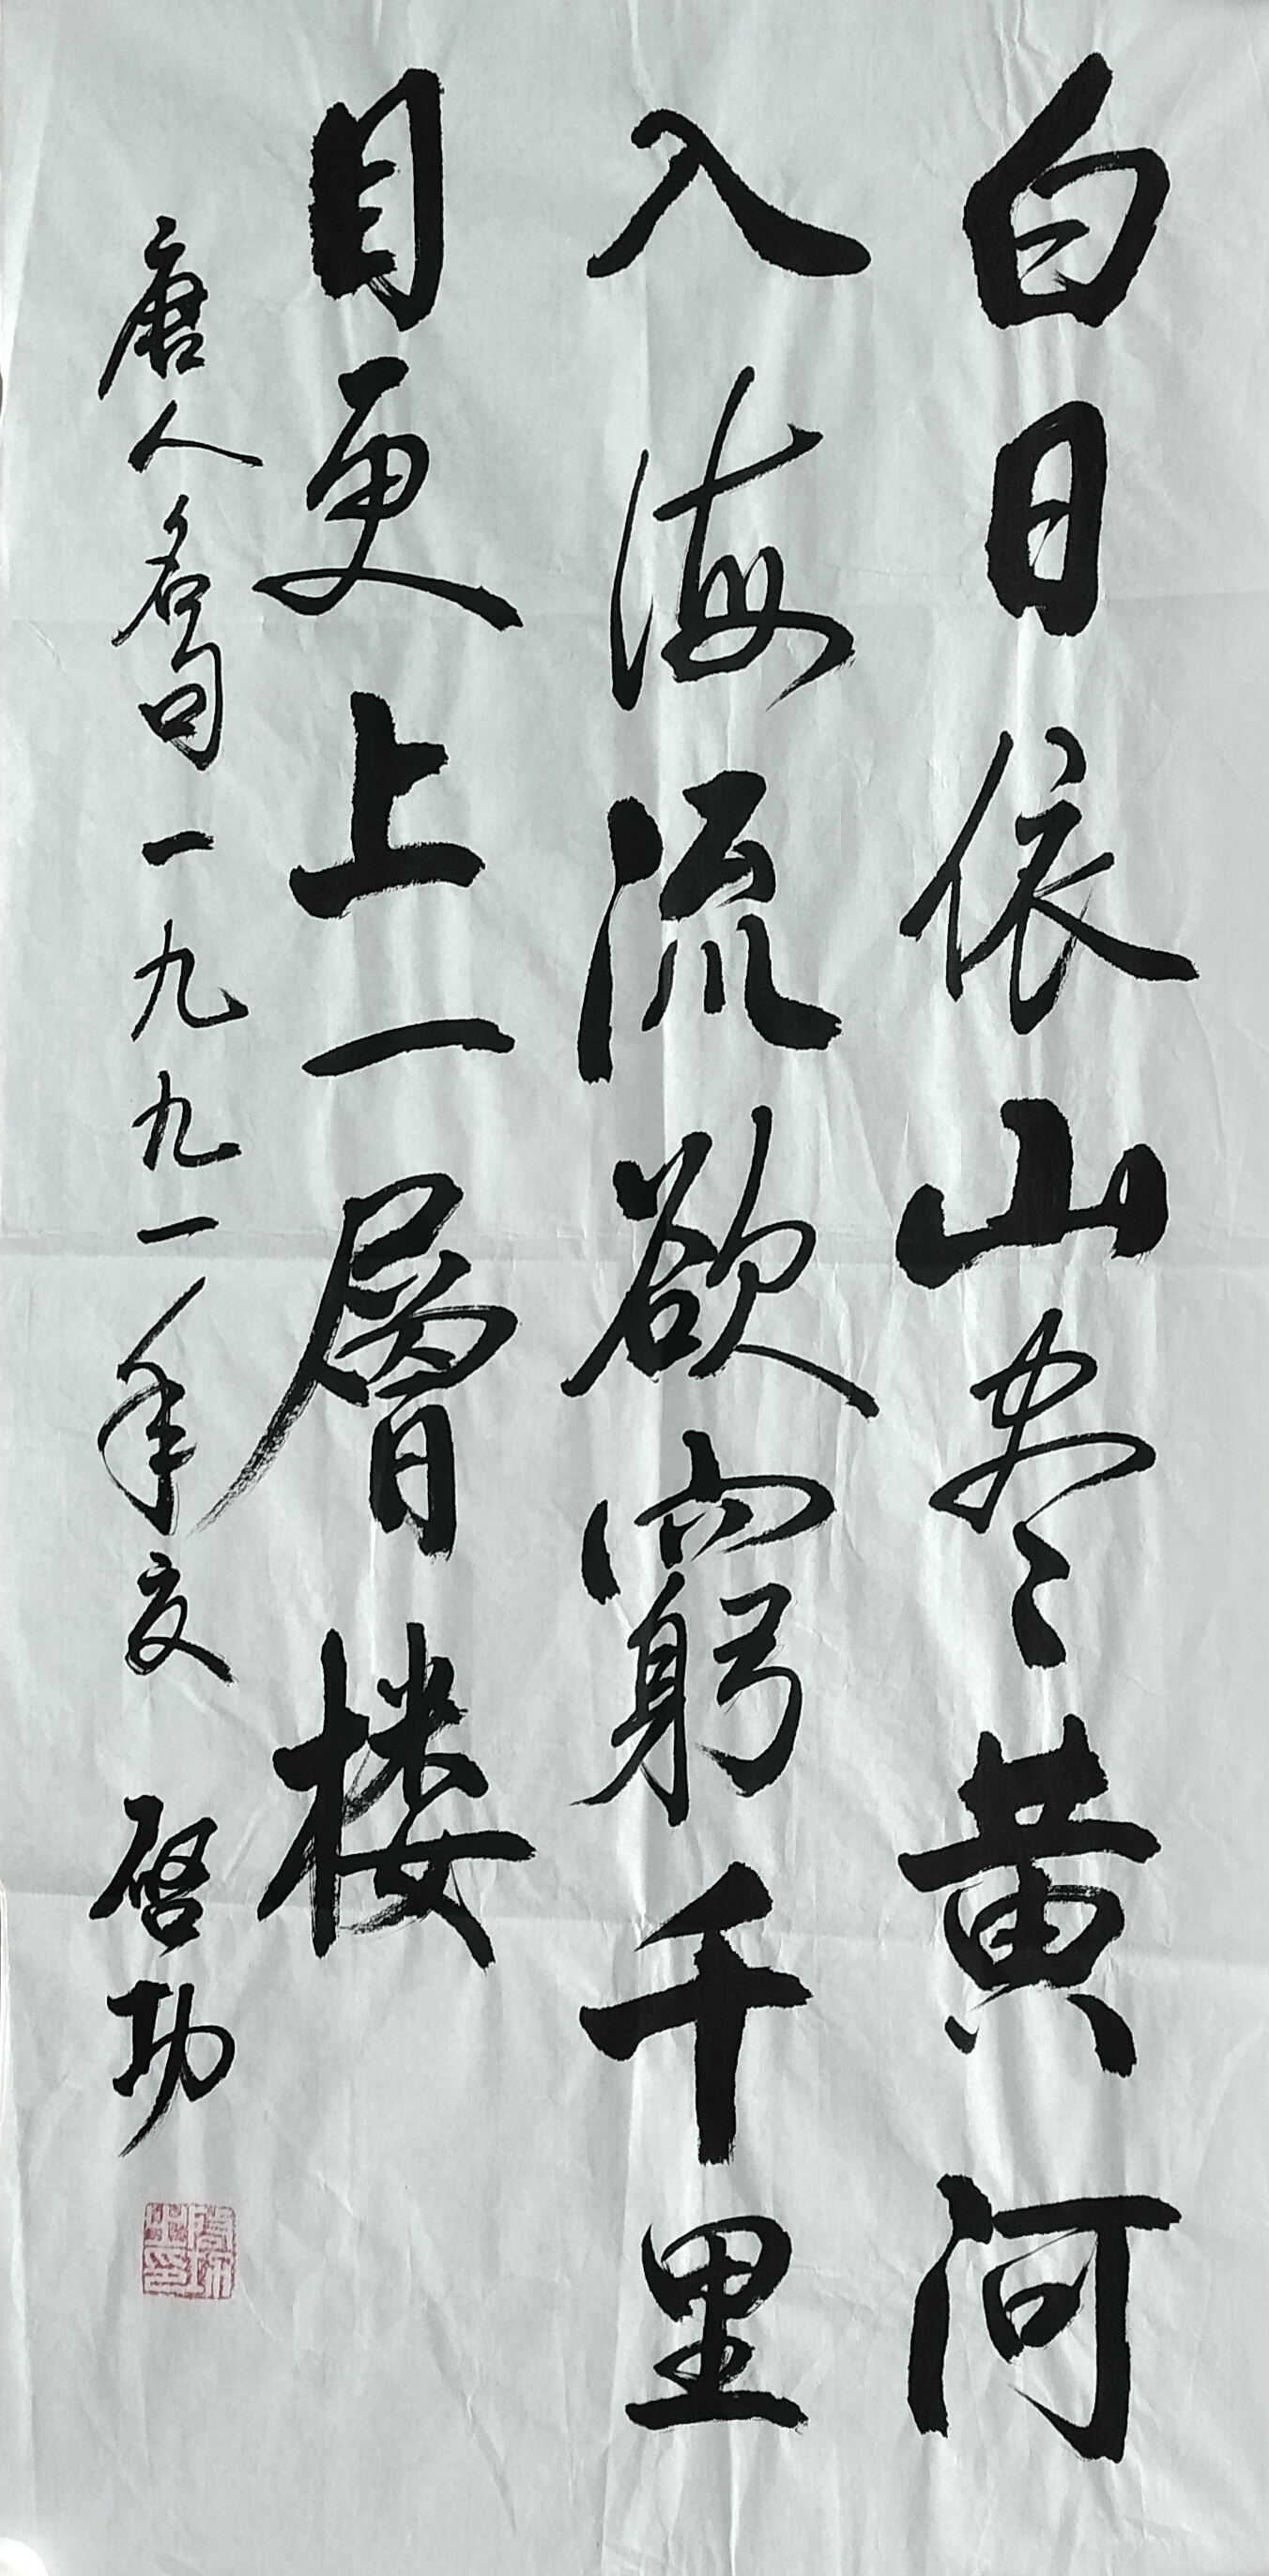 白日依山尽黄河
入海流欲窮千里
目更上一層楼
唐人名句一九九一年夏 啓功
啓功之印